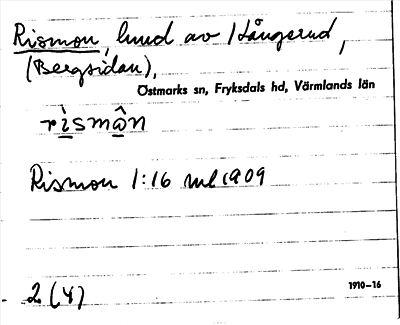 Rismon, hmd av Långerud,
(Bergsidan),
Östmarks sn, Fryksdals hd, Värmlands län
rìsmân
Rismon 1:16 ml 1909
2 (4)
1910–16